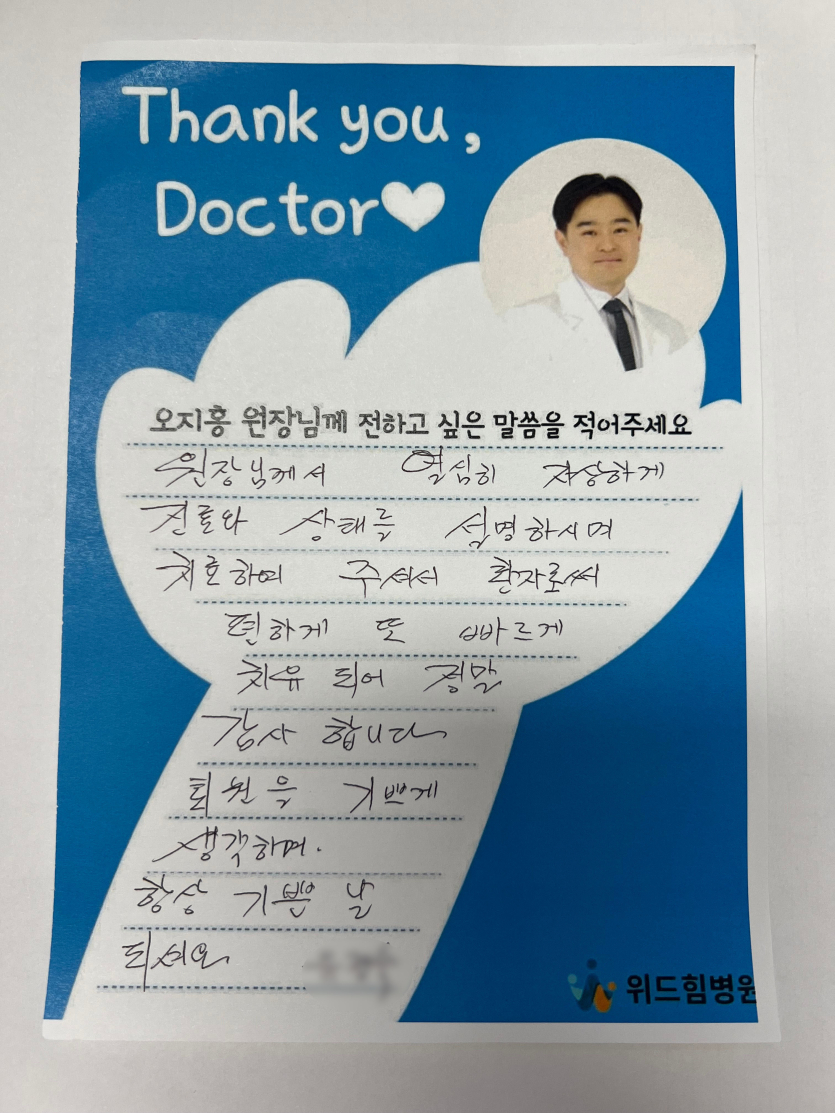 Thank you,
Doctor
오지흥 원장님께 전하고 싶은 말씀을 적어주세요
원장님께서 열심히 자상하게
진료와 상태를 설명하시며
치료하여 주셔서 환자로써
편하게 또 빠르게
치유 되어 정말
감사 합니다
퇴원을 기쁘게
생각하며.
항상 기쁜 날
되세요
위드힘병원